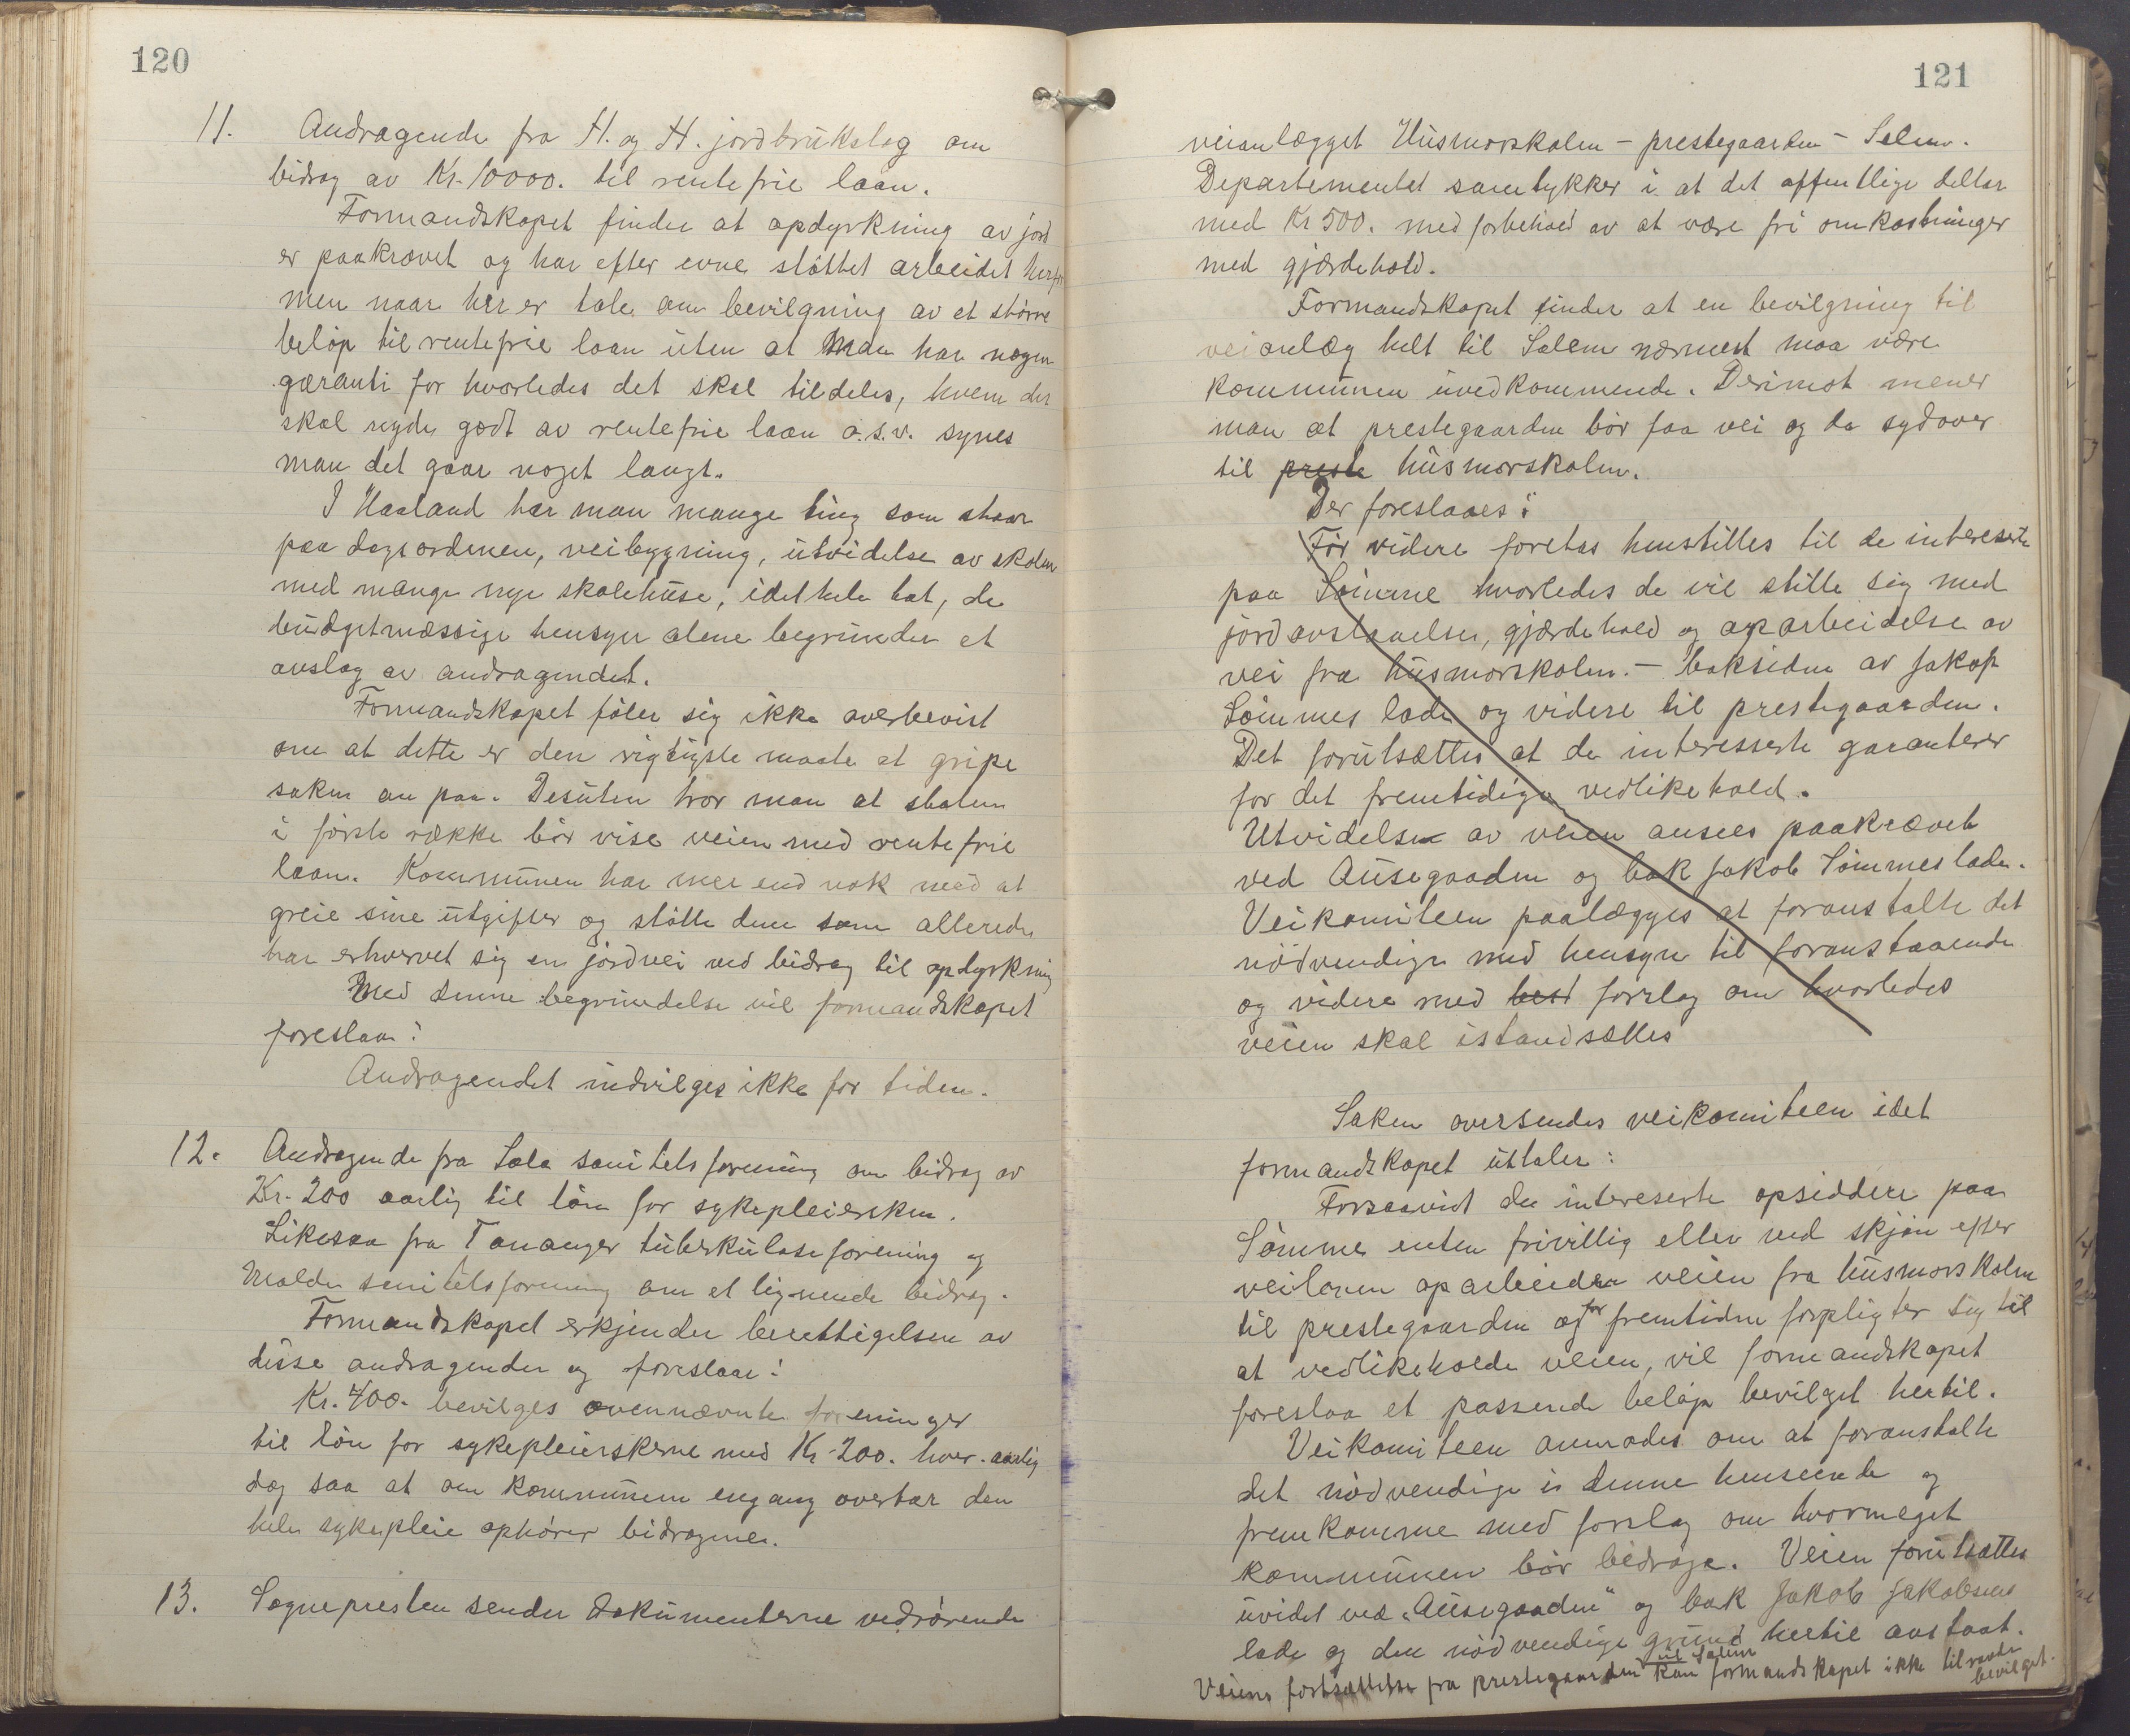 120
11. Andragende fra H. og H. jordbrukslag om
bidrag av Kr. 10000. til rentefrie laan.
Formandskapet finder at opdyrkning av jord
er paakrævet og har efter evne støttet arbeidet herfor
men naar her er tale om bevilgning av et større
beløp til rentefrie laan uten at man har nogen
garanti for hvorledes det skal tildeles, hvem der
skal nyde godt av rentefrie laan o.s.v. synes
man det gaar noget langt.
I Haaland har man mange ting som staar
paa dagsordenen, veibygning, utvidelse av skolen
med mange nye skolehuse, idethele tat, de
budgetmæssige hensyn alene begrunder et
avslag av andragendet.
Formandskapet føler sig ikke overbevist
om at dette er den rigtigste maate at gripe
saken an paa. Desuten tror man at staten
i første række bør vise veien med rentefrie
laan. Kommunen har mer end nok med at
greie sine utgifter og støtte dem som allerede
har erhvervet sig en jordvei ved bidrag til opdyrkning
Med denne begrundelse vil formandskapet
foreslaa:
Andragendet indvilges ikke for tiden.
12. Andragende fra Sola sanitetsforening om bidrag av
Kr. 200 aarlig til løn for sykepleiersken.
Likesaa fra Tananger tuberkuloseforening og
Malde sanitetsforening om et lignende bidrag.
Formandskapet erkjender berettigelsen av
disse andragender og foreslaar:
Kr. 400. bevilges ovennævnte foreninger
til løn for sykepleierskerne med Kr. 200. hver. aarlig
dog saa at om kommunen engang overtar den
hele sykepleie ophører bidragene.
13. Sognepresten sender dokumenterne vedrørende
121
veianlægget Husmorskolen - prestegaarden - Salem.
Departementet samtykker i at det offentlige deltar
med Kr 500. med forbehold av at være fri omkostninger
med gjærdehold.
Formandskapet finder at en bevilgning til
veianlæg helt til Salem nærmest maa være
kommunen uvedkommende. Derimot mener
man at prestegaarden bør faa vei og da sydover
til preste husmorskolen.
Der foreslaaes:
Før videre foretas henstilles til de intereserte
paa Sømme hvorledes de vil stille sig med
jordavstaaelse, gjærdehold og oparbeidelse av
vei fra husmorskolen. - baksiden av Jakop
Sømmes lade og videre til prestegaarden.
Det forutsættes at de interesserte garanterer
for det fremtidige vedlikehold.
Utvidelse av veien ansees paakrævet
ved Ausegaaden og bak Jakob Sømmes lade.
Veikomiteen paalægges at foranstalte det
nødvendige med hensyn til foranstaaende
og videre med best forslag om hvorledes
veien skal istandsættes
Saken oversendes veikomiteen idet
formandskapet uttaler:
Forsaavidt de intereserte opsiddere paa
Sømme enten frivillig eller ved skjøn efter
veiloven oparbeider veien fra husmorskolen
til prestegaarden og for fremtiden forpligter sig til
at vedlikeholde veien, vil formandskapet
foreslaa et passende beløp bevilget hertil.
Veikomiteen anmodes om at foranstalte
det nødvendige i denne henseende og
fremkomme med forslag om hvormeget
kommunen bør bidrage. Veien forutsættes
uvidet ved "Ausegaaden" og bak Jakob Jakobsens
lade og den nødvendige grund hertil avstaat.
Veiens fortsættelse fra prestegaarden til Salem kan formandskapet ikke tilraade
bevilget.